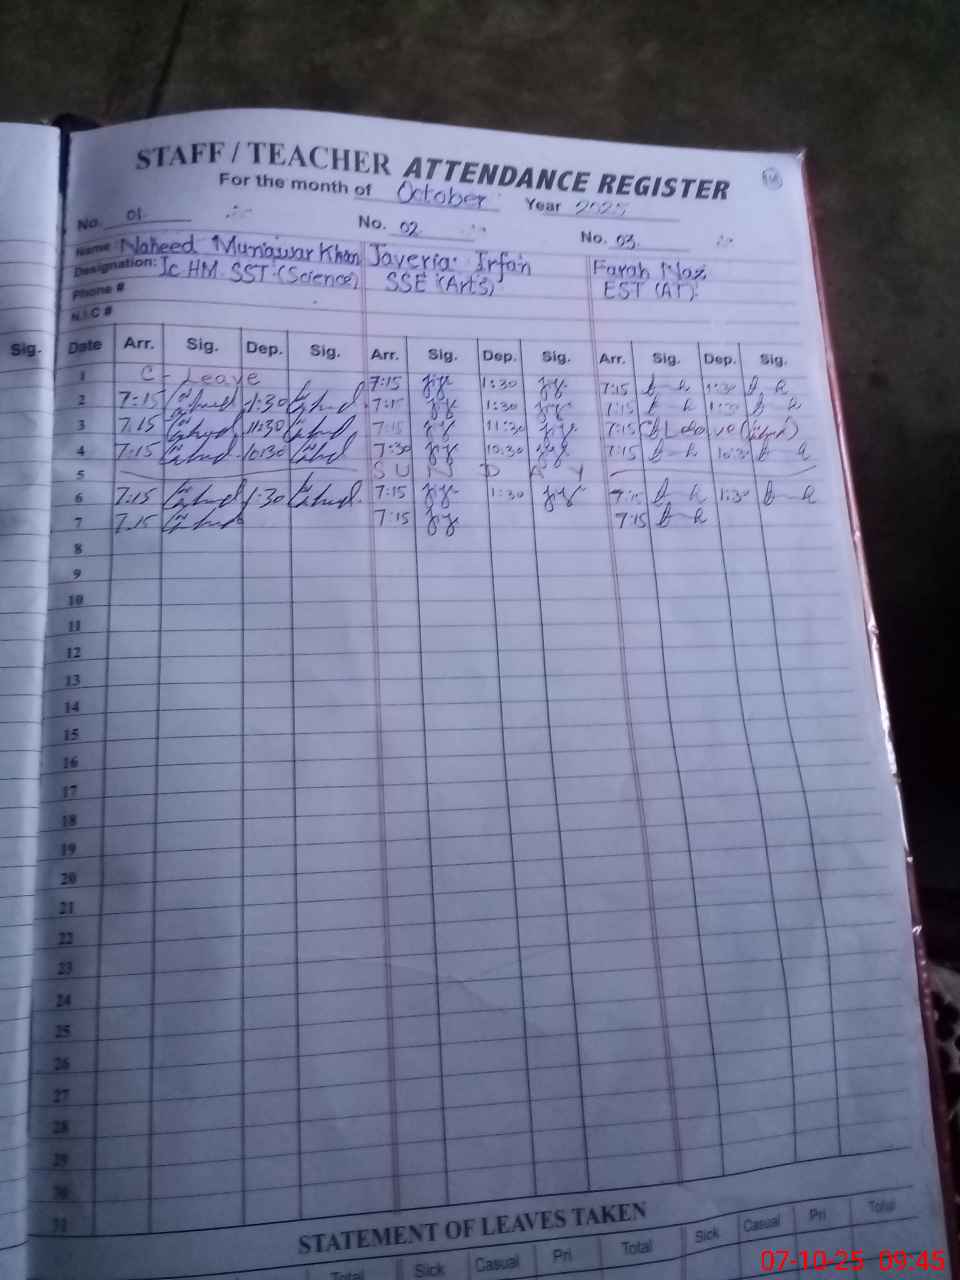 STAFF / TEACHER ATTENDANCE REGISTER
For the month of October Year 2025
No. 01 No. 02 No. 03
Name: Naheed Munawar Khan Javeria Irfan Farah Naz
Designation: Ic HM SST (Science) SSE (Arts) EST (AT)
Phone #
N.I.C #
Sig. Date Arr. Sig. Dep. Sig. Arr. Sig. Dep. Sig. Arr. Sig. Dep. Sig.
1 C - Leave 7:15 1:30 7:15 1:30
2 7:15 1:30 7:15 1:30 7:15 1:30
3 7.15 11:30 7:15 11:30 7:15
4 7:15 10:30 7:30 10:30 7:15 10:30
5 S U N D A Y
6 7:15 1:30 7:15 1:30 7:15 1:30
7 7.15 7:15 7:15
8
9
10
11
12
13
14
15
16
17
18
19
20
21
22
23
24
25
26
27
28
29
30
31
STATEMENT OF LEAVES TAKEN
Total Sick Casual Pri Total Sick Casual Pri Total
07-10-25 09:45